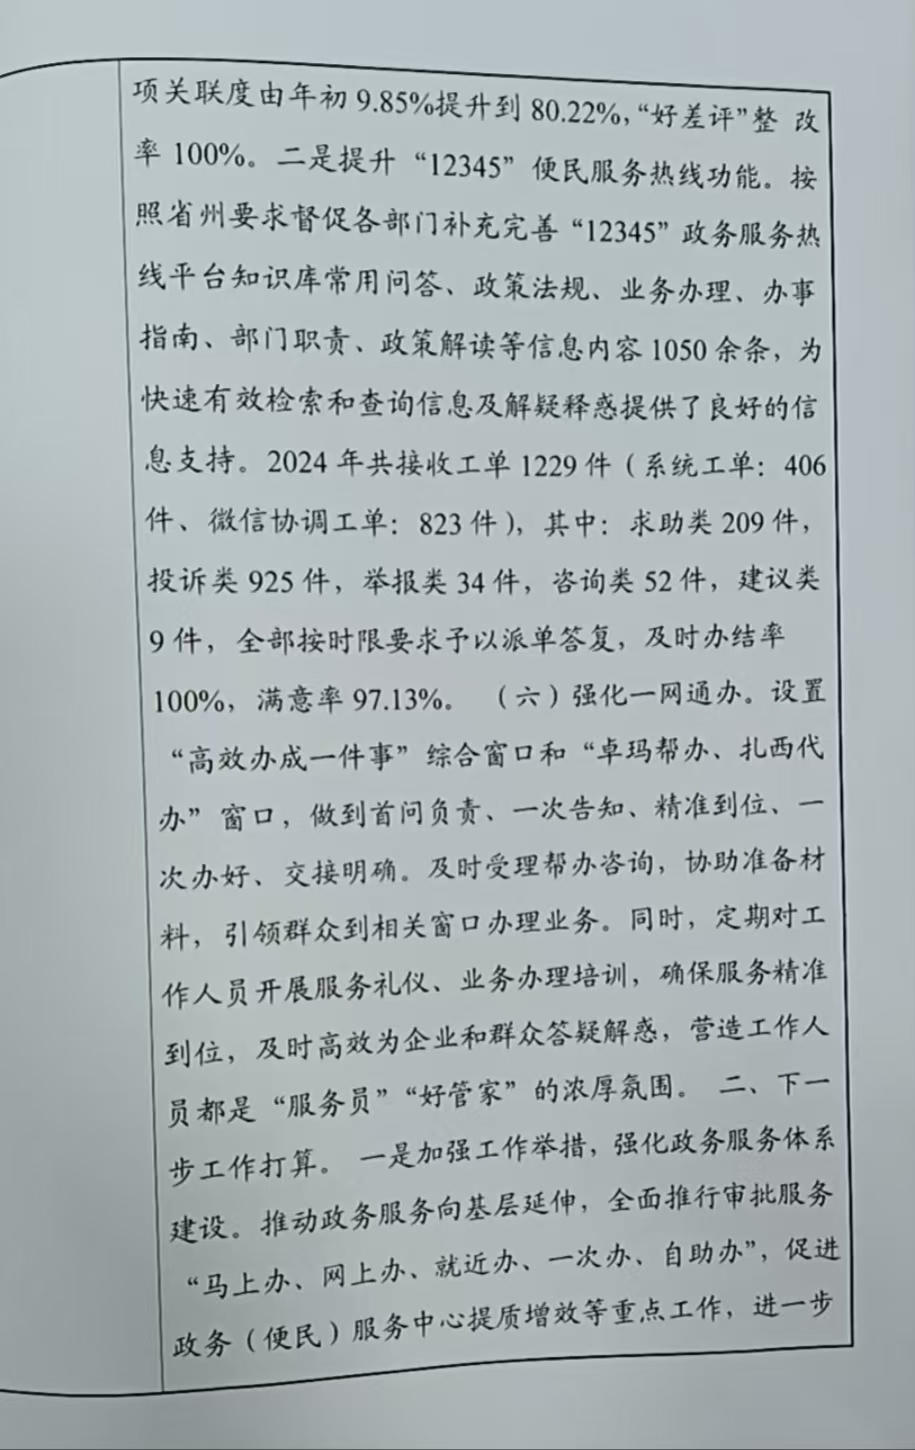 项关联度由年初 9.85%提升到 80.22%,“好差评”整 改
率 100%。二是提升“12345”便民服务热线功能。按
照省州要求督促各部门补充完善“12345”政务服务热
线平台知识库常用问答、政策法规、业务办理、办事
指南、部门职责、政策解读等信息内容 1050 余条，为
快速有效检索和查询信息及解疑释惑提供了良好的信
息支持。2024 年共接收工单 1229 件（系统工单：406
件、微信协调工单：823 件），其中：求助类 209 件，
投诉类 925 件，举报类 34 件，咨询类 52 件，建议类
9 件，全部按时限要求予以派单答复，及时办结率
100%，满意率 97.13%。（六）强化一网通办。设置
“高效办成一件事”综合窗口和“卓玛帮办、扎西代
办”窗口，做到首问负责、一次告知、精准到位、一
次办好、交接明确。及时受理帮办咨询，协助准备材
料，引领群众到相关窗口办理业务。同时，定期对工
作人员开展服务礼仪、业务办理培训，确保服务精准
到位，及时高效为企业和群众答疑解惑，营造工作人
员都是“服务员”“好管家”的浓厚氛围。 二、下一
步工作打算。 一是加强工作举措，强化政务服务体系
建设。推动政务服务向基层延伸，全面推行审批服务
“马上办、网上办、就近办、一次办、自助办”，促进
政务（便民）服务中心提质增效等重点工作，进一步